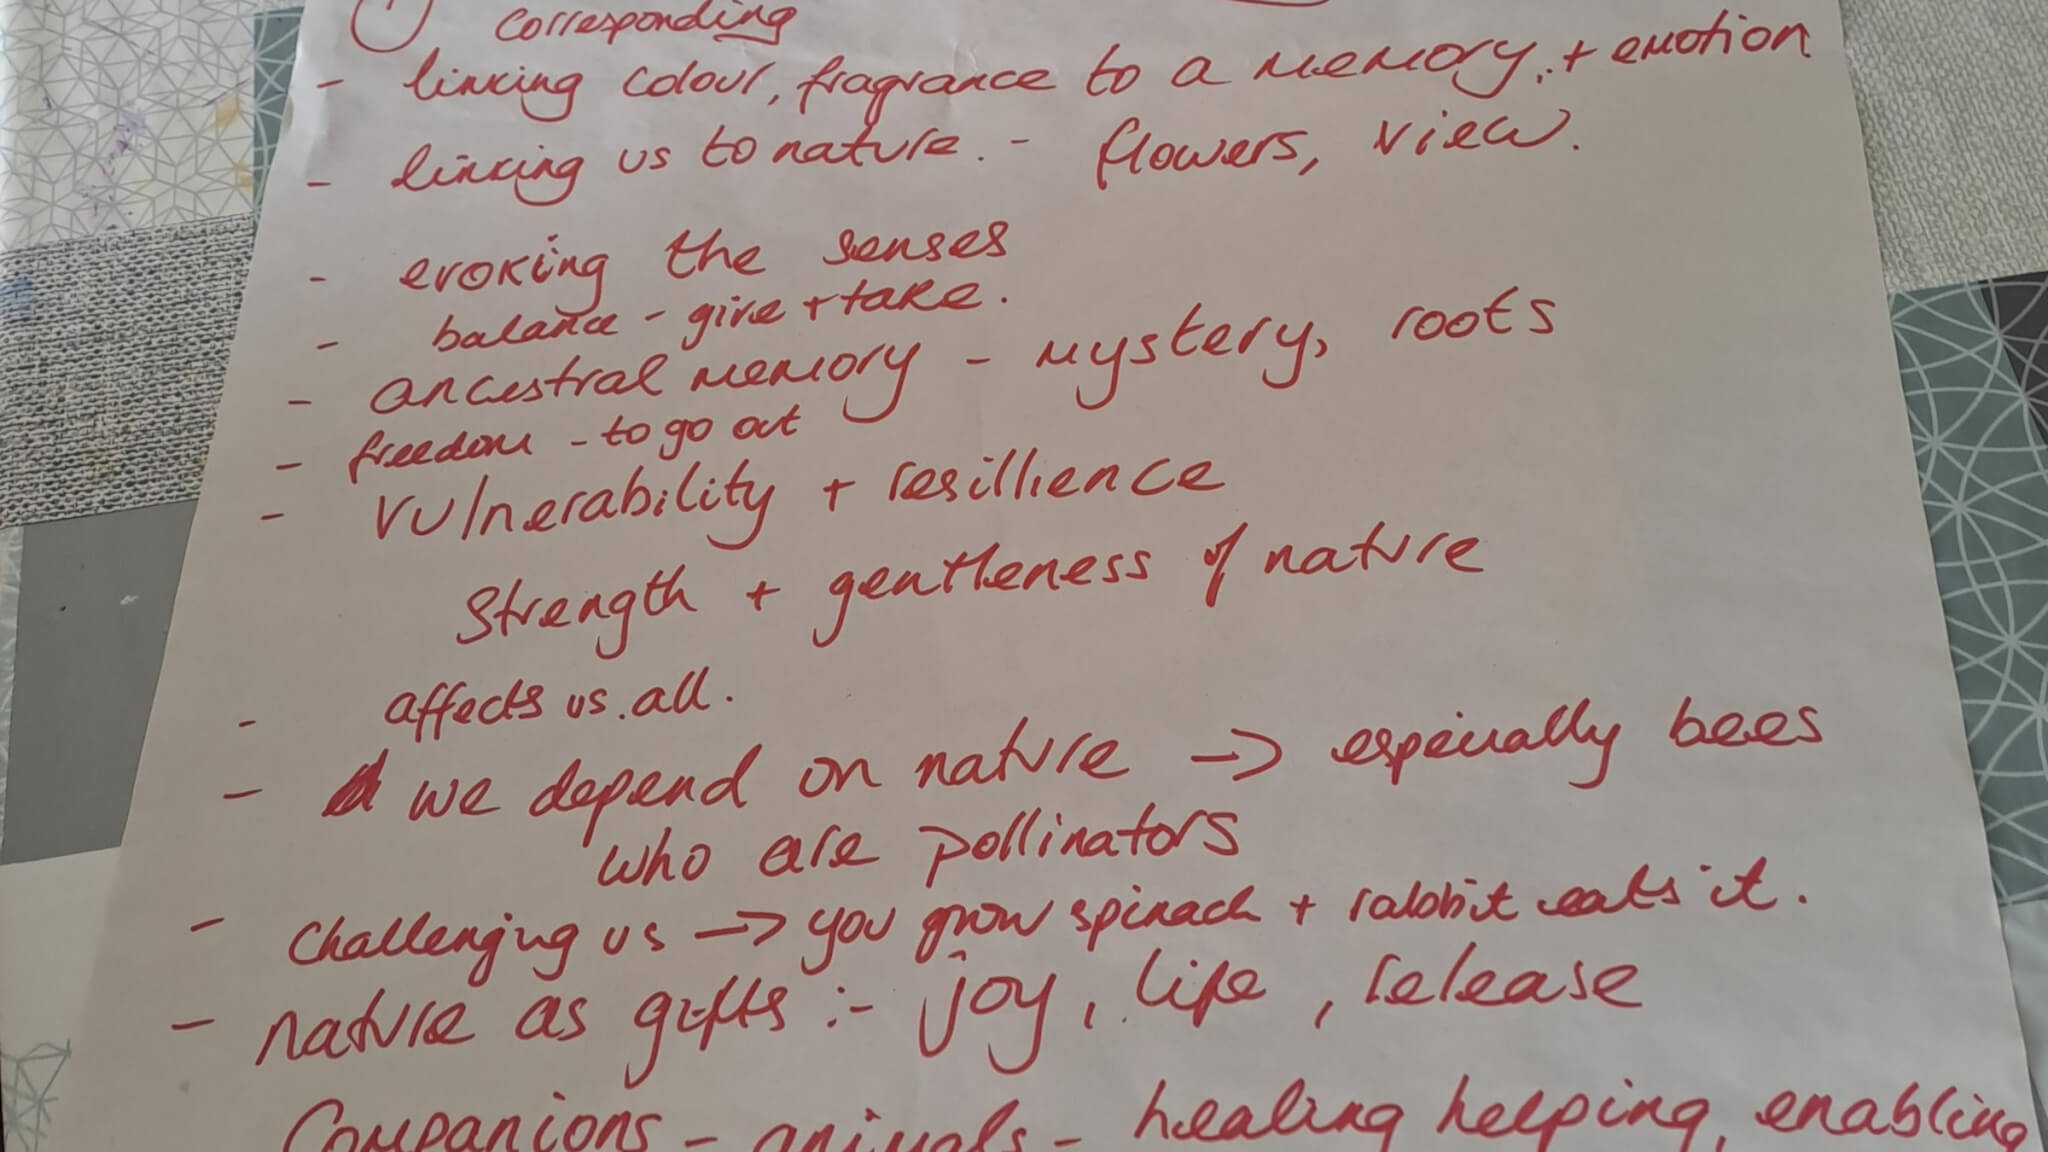 1 corresponding
- linking colour, fragrance to a memory, + emotion
- linking us to nature. - flowers, view.
- evoking the senses
- balance - give + take.
- ancestral memory - mystery, roots
- freedom - to go out
- vulnerability + resillience
strength + gentleness of nature
- affects us all.
- we depend on nature -> especially bees
who are pollinators
- challenging us -> you grow spinach + rabbit eats it.
- nature as gifts :- joy, life, release
Companions - animals - healing helping, enabling